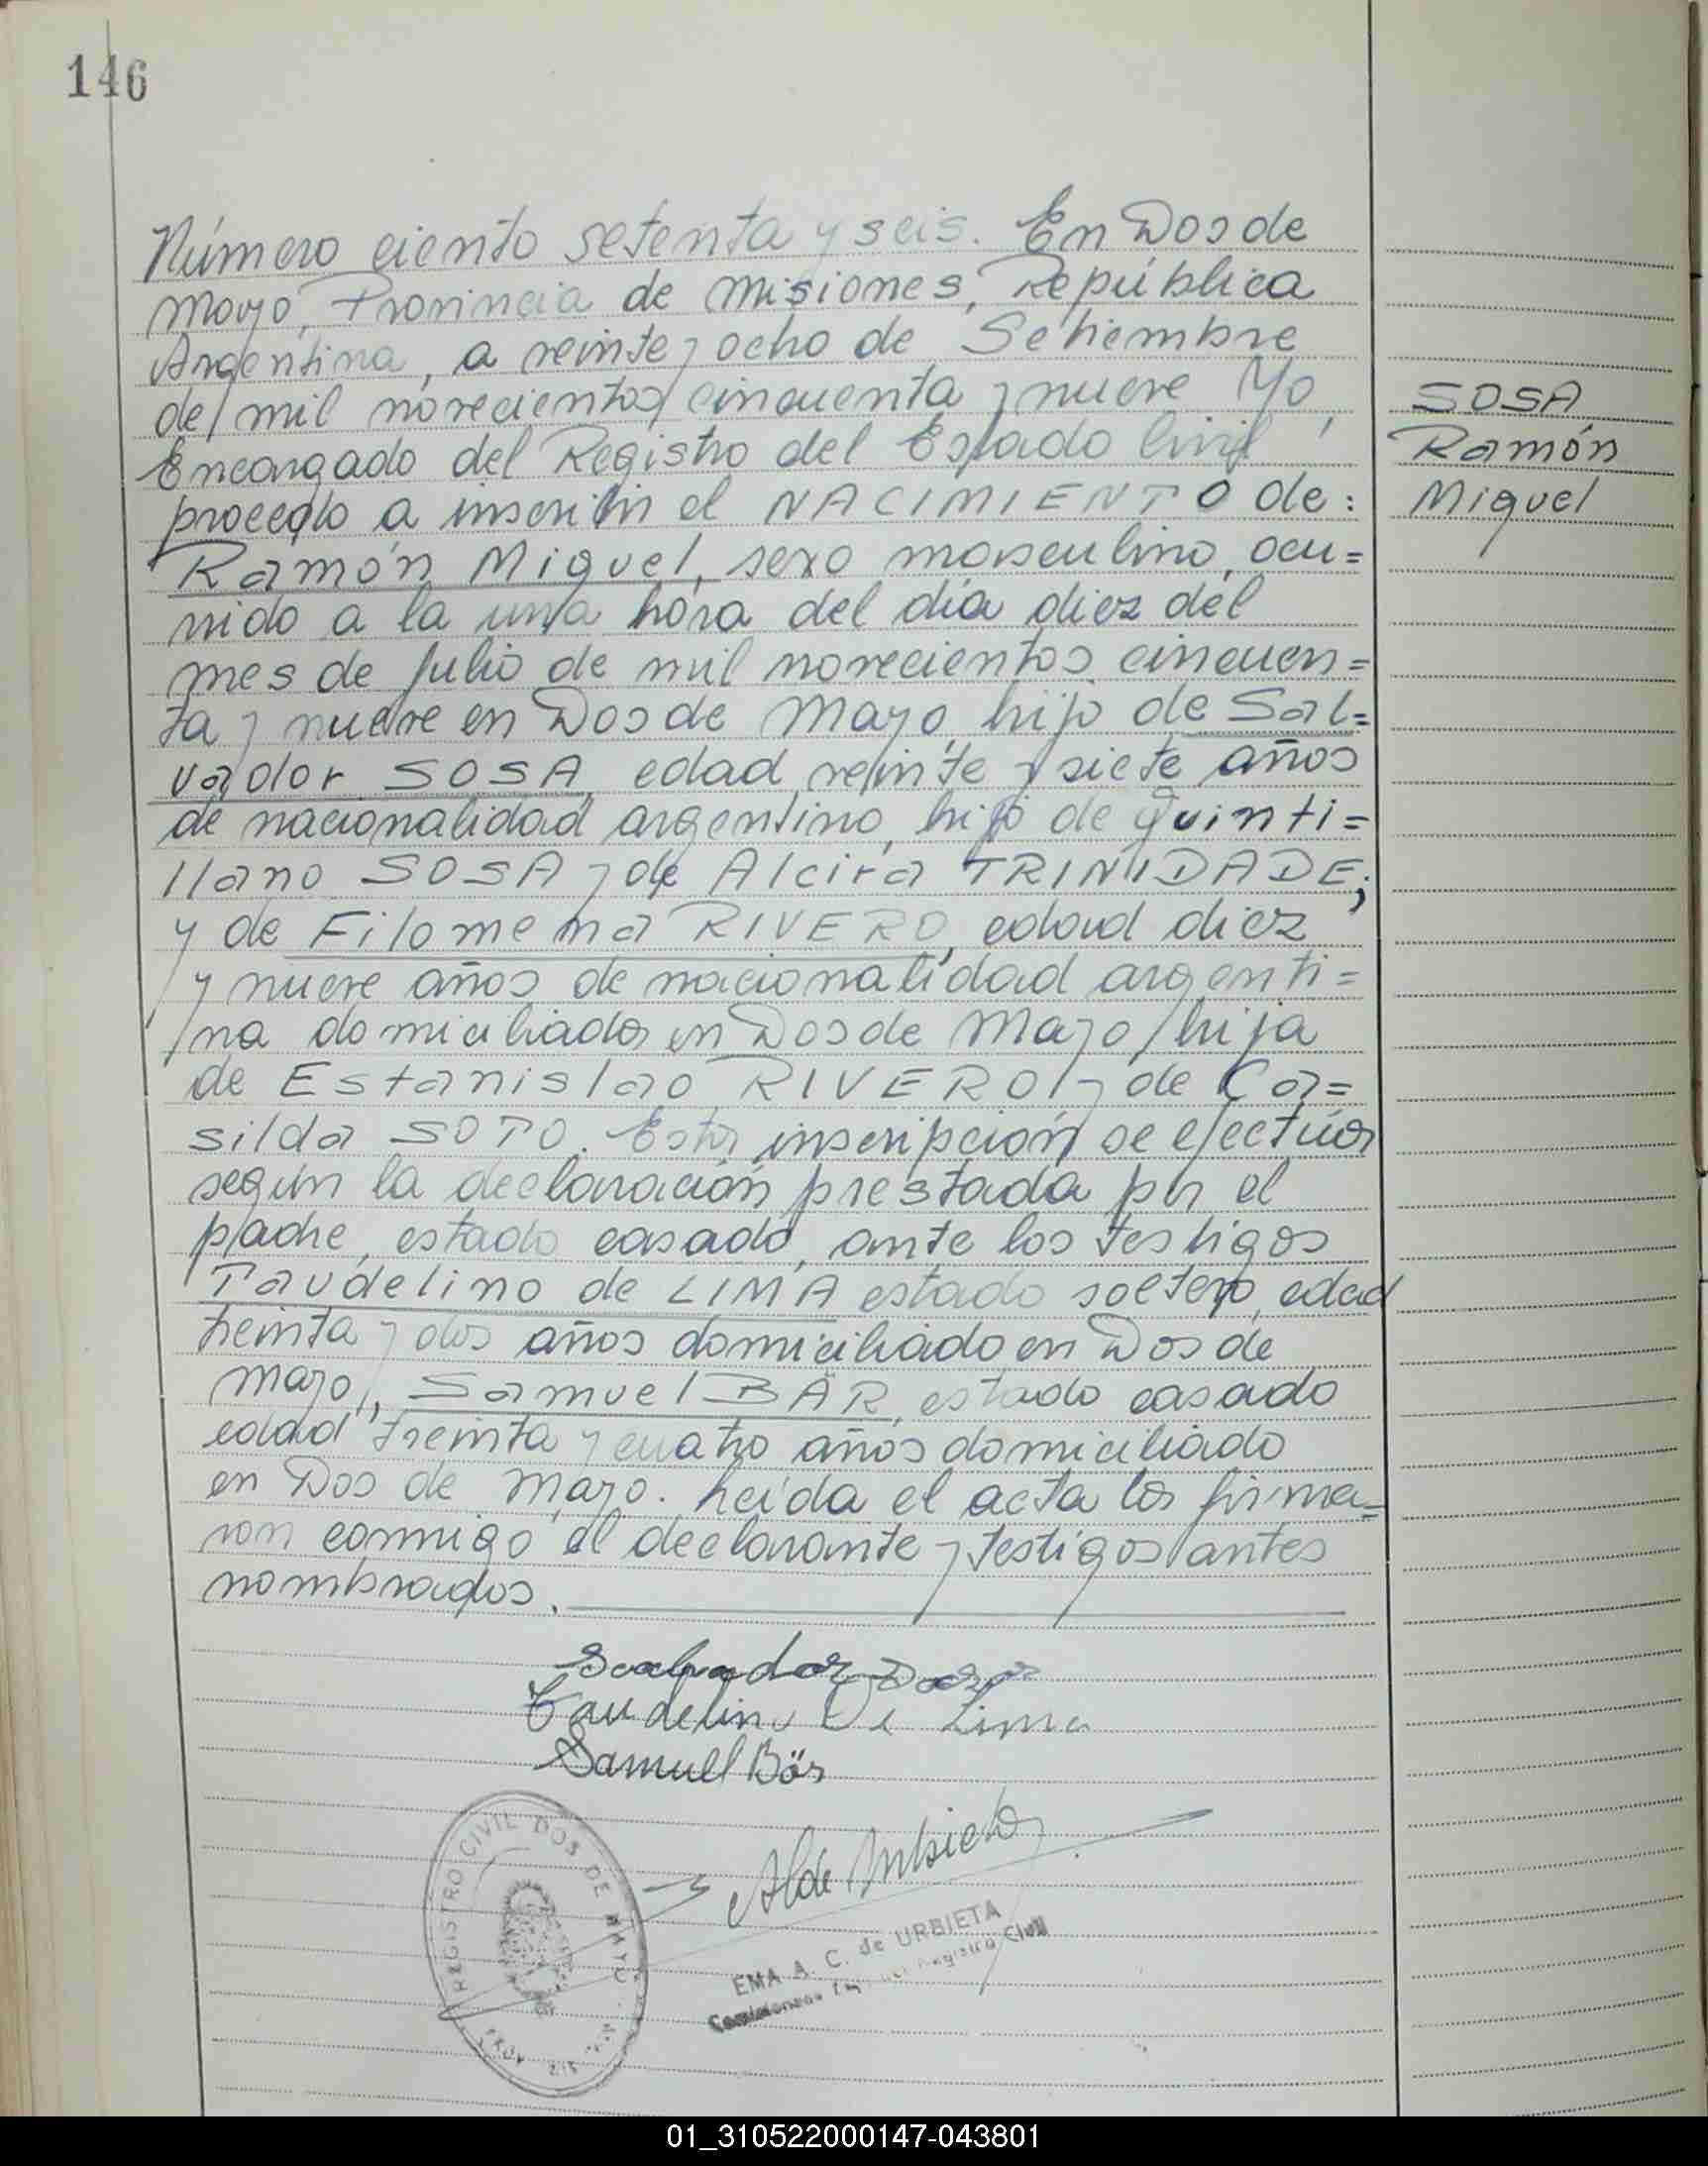 146
Número ciento setenta y seis. En Dos de
Mayo, Provincia de Misiones, República
Argentina, a veinte y ocho de Setiembre
de mil novecientos cincuenta y nueve Yo,
Encargado del Registro del Estado Civil
procedo a inscribir el NACIMIENTO de:
Ramón Miguel, sexo masculino, ocu=
rrido a la una hora del día diez del
mes de Julio de mil novecientos cincuen=
ta y nueve en Dos de Mayo, hijo de Sal=
vador SOSA, edad veinte y siete años
de nacionalidad argentino, hijo de Quinti=
llano SOSA y de Alcira TRINIDADE;
y de Filomena RIVERO, edad diez
y nueve años de nacionalidad argenti=
na domiciliados en Dos de Mayo, hija
de Estanislao RIVERO y de Ca=
silda SOTO. Esta inscripción se efectúa
según la declaración prestada por el
padre, estado casado, ante los testigos
Taudelino de LIMA estado soltero, edad
treinta y dos años domiciliado en Dos de
Mayo, Samuel BÄR, estado casado
edad treinta y cuatro años domiciliado
en Dos de Mayo. Leída el acta la firma=
ron conmigo el declarante y testigos antes
nombrados.
SOSA
Ramón
Miguel
Salvador Sosa
Taudelino De Lima
Samuel Bär
REGISTRO CIVIL DOS DE MAYO
EMA A. C. de URBIETA
Registro Civil
01_310522000147-043801